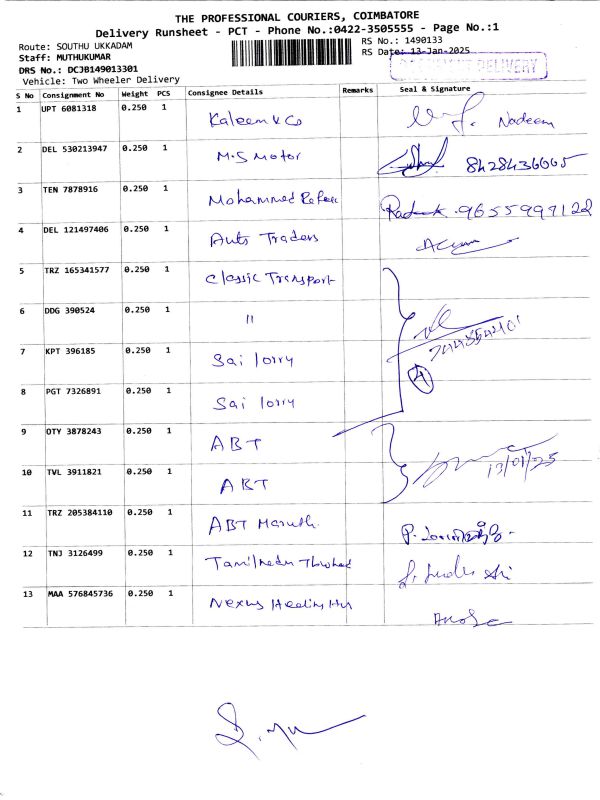 THE PROFESSIONAL COURIERS, COIMBATORE
Delivery Runsheet - PCT - Phone No.:0422-3505555 - Page No.:1
Route: SOUTHU UKKADAM
RS No.: 1490133
Staff: MUTHUKUMAR
RS Date: 13-Jan-2025
DRS No.: DCJB149013301
DELIVERY
Vehicle: Two Wheeler Delivery
S No Consignment No Weight PCS Consignee Details Remarks Seal & Signature
1 UPT 6081318 0.250 1 Kaleem & Co Nadeem
2 DEL 530213947 0.250 1 M.S Motor 8428436665
3 TEN 7878916 0.250 1 Mohammed 9655999122
4 DEL 121497406 0.250 1 Auto Traders
5 TRZ 165341577 0.250 1 Classic Transport
6 DDG 390524 0.250 1 "
7 KPT 396185 0.250 1 Sai lorry
4
8 PGT 7326891 0.250 1 Sai lorry
9 OTY 3878243 0.250 1 ABT
13/01/25
10 TVL 3911821 0.250 1 ABT
11 TRZ 205384110 0.250 1 ABT Maruthi
12 TNJ 3126499 0.250 1 Tamilnadu
13 MAA 576845736 0.250 1 Nexus